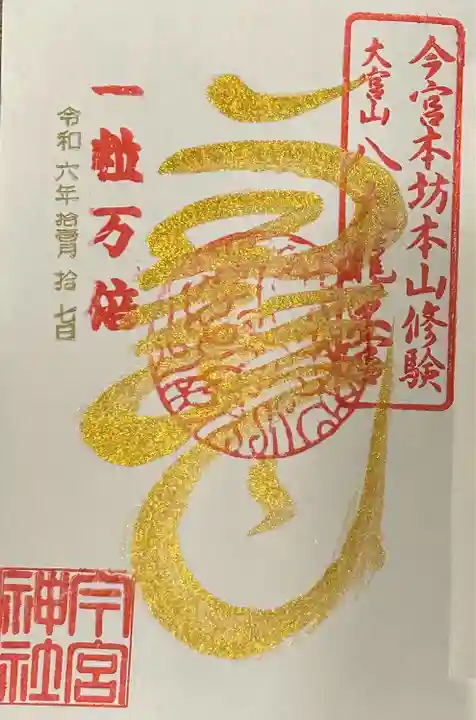 今宮本坊本山修験
大宮山八大龍王宮
一粒万倍
令和六年拾壹月拾七日
今宮神社